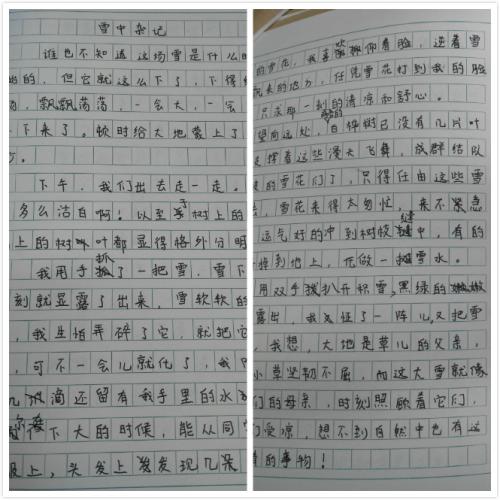 雪中杂记
谁也不知道这场雪是什么
出的，但它就这么下了，下得
，飘飘荡荡，一会大，一会
下来了。顿时给大地蒙上了
下午，我们出去走一走。
多么洁白啊！以至于树上的
上的树叶都显得格外分明
我用手抓了一把雪，雪下
刻就显露了出来，雪软软的
，我生怕弄碎了它，就把它
，可不一会儿就化了，我
几滴还留有我手里的水
下大的时候，能从同
服上，头发上发现几朵
的雪花，我喜欢仰着脸，迎着雪
来的地方，任凭雪花打到我的脸
只求那一刻的清凉和舒心。
望向远处，白桦树已没有几片叶
撑着这些漫天飞舞，成群结队
的雪花们了，只得任由这些雪
，雪花来得太匆忙，来不
运气好的冲到树枝缝中，有的
掉到地上，化做一摊雪水。
用双手拨扒开积雪，黑绿的嫩
露出，我怔了一阵儿，又把雪
，我想，大地是草儿的父亲，
小草坚韧不屈，而这大雪就像
们的母亲，时刻照顾着它们，
们受凉，想不到自然中也有这
着的事物！